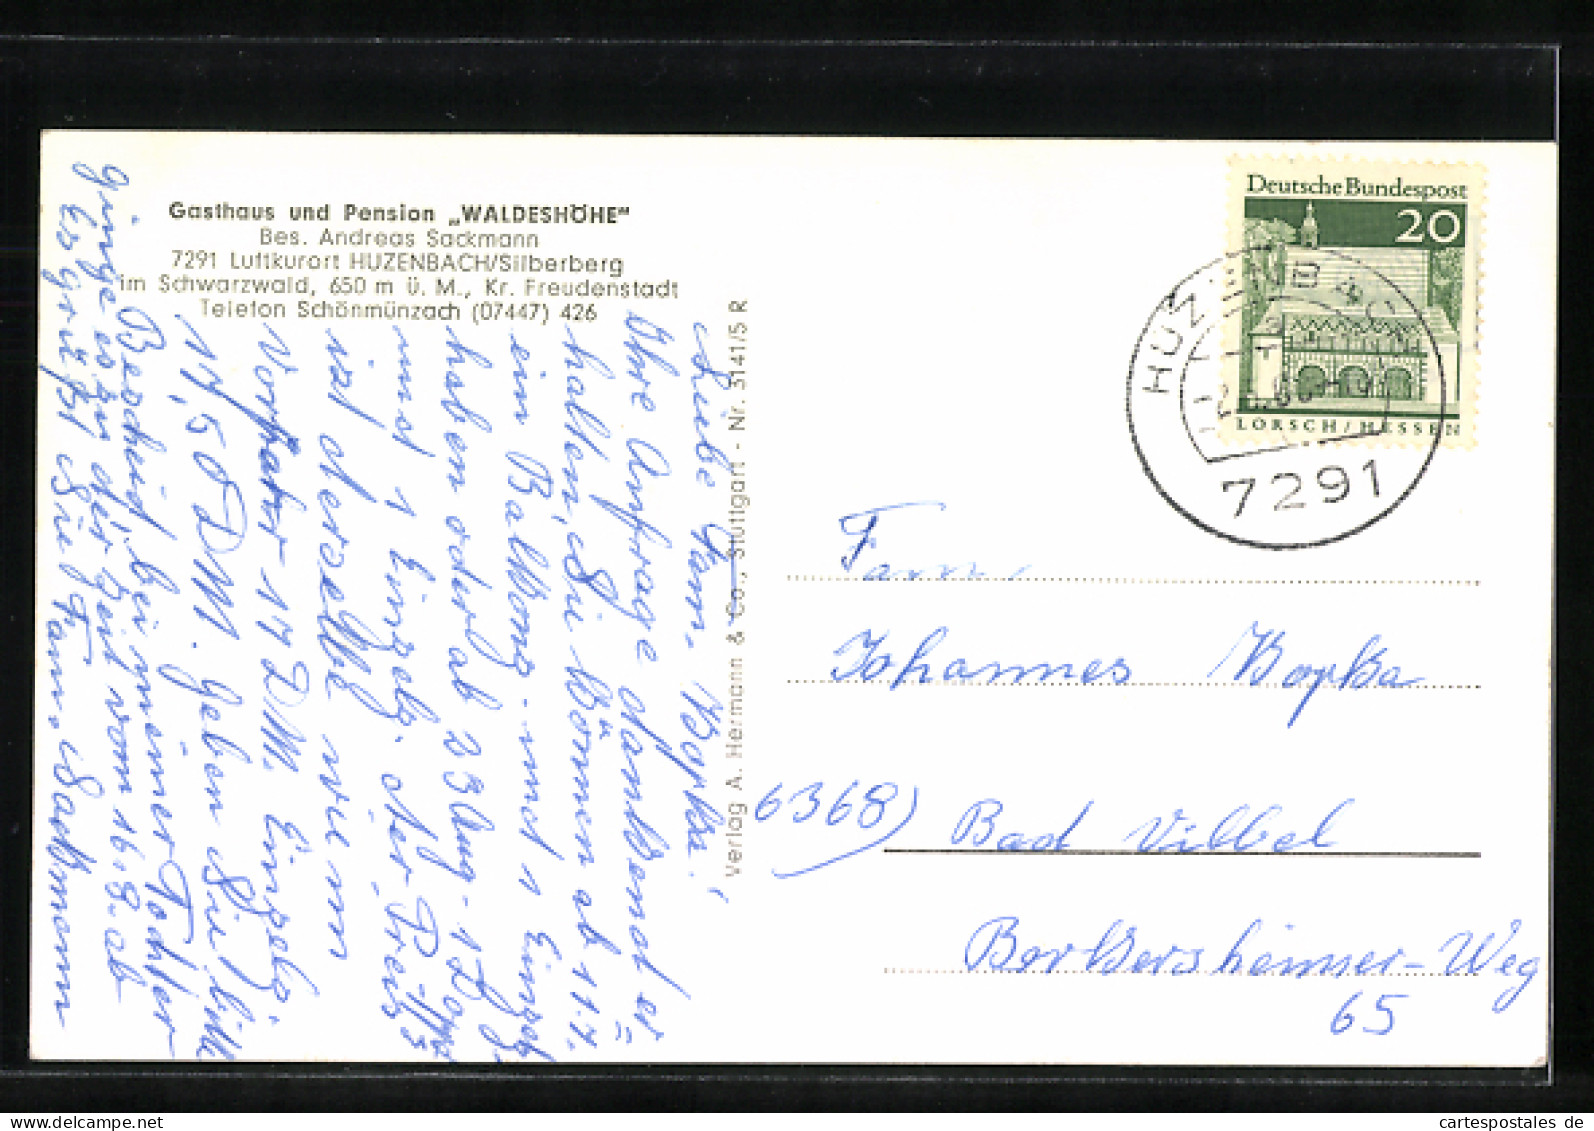 Gasthaus und Pension „WALDESHÖHE"
Bes. Andreas Sackmann
7291 Luftkurort HUZENBACH/Silberberg
im Schwarzwald, 650 m ü. M., Kr. Freudenstadt
Telefon Schönmünzach (07447) 426
Liebe Fam. Kopka!
Ihre Anfrage dankend er=
halten, Sie können ab 11.7.
ein Balkonz. und 1 Einzelz.
haben oder ab 23 Aug. 1 Dopp
und 1 Einzelz. der Preis
ist derselbe wie im
Vorjahr 17 DM. Einzelz.
17,50 DM. Geben Sie bitte
Bescheid bei meiner Tochter
ginge es zu der Zeit vom 16.8. ab
Es grüßt Sie Fam. Sackmann
Verlag A. Hermann & Co., Stuttgart - Nr. 3141/5 R
Deutsche Bundespost
20
LORSCH/HESSEN
HUZENBACH
7291
Fam.
Johannes Kopka
6368) Bad Vilbel
Berkersheimer-Weg
65
cartespostales.de